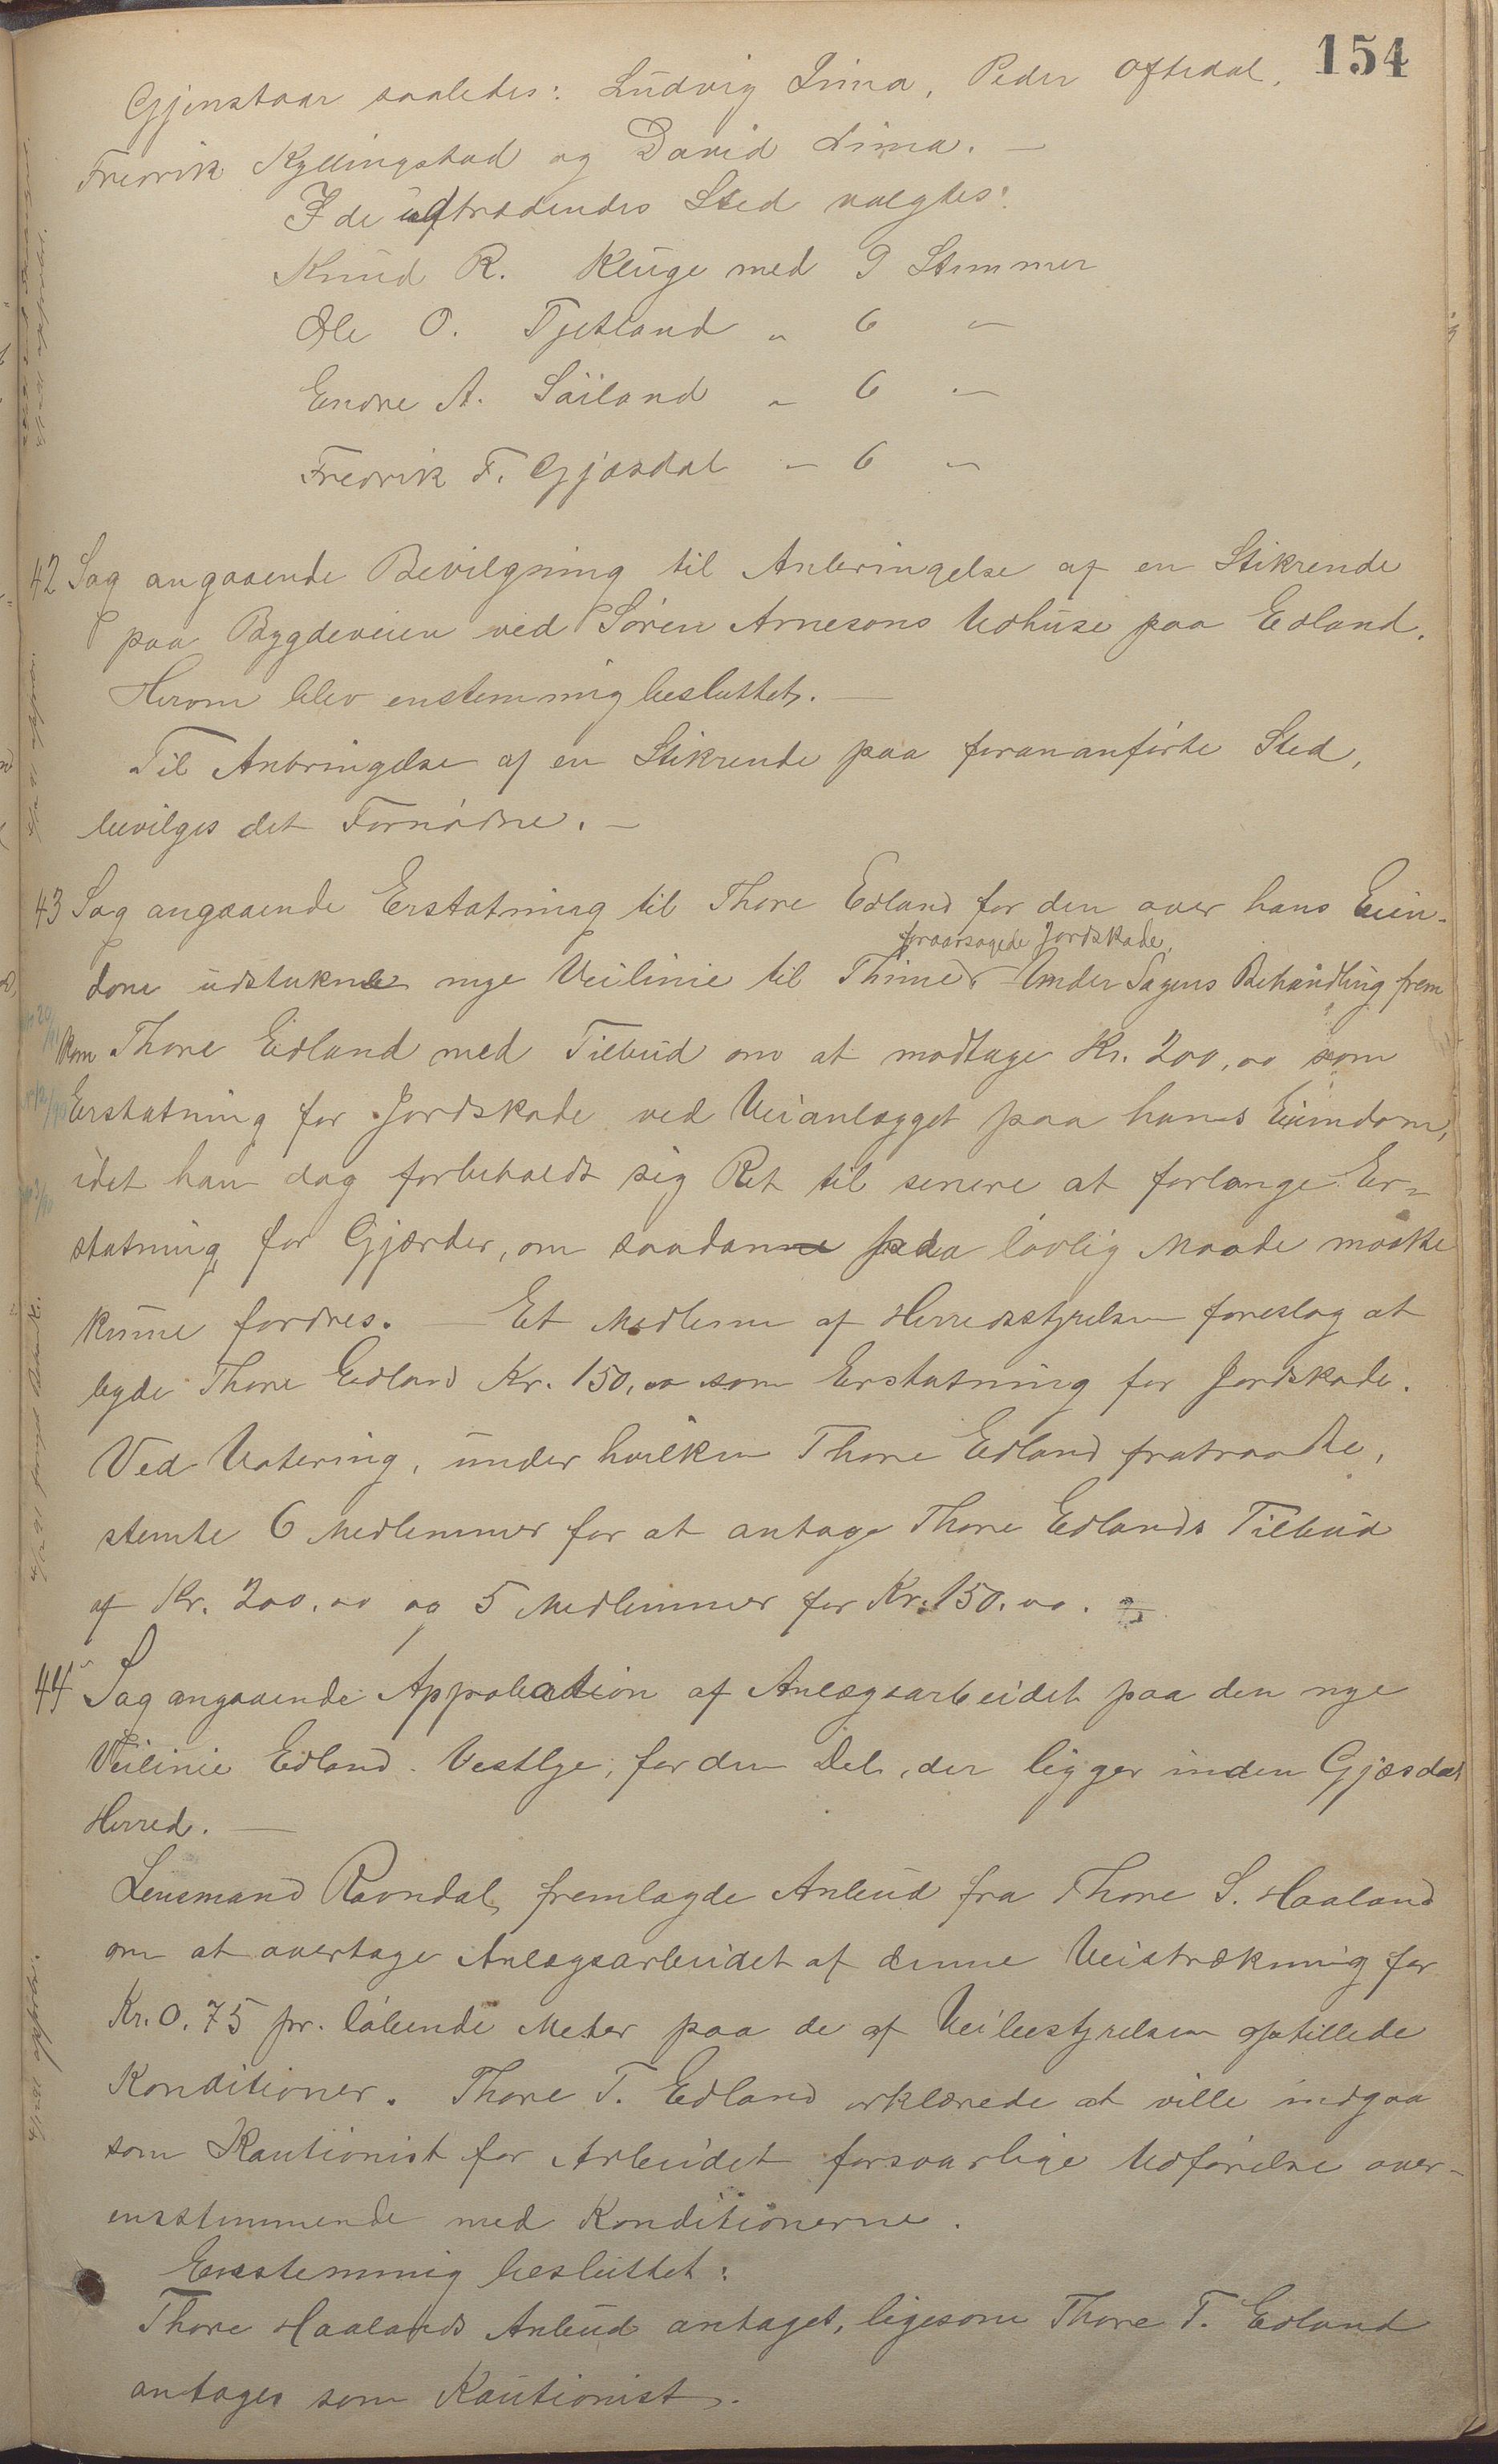 154
Gjenstaar saaledes: Ludvig Lima, Peder Oftedal,
Fredrik Kyllingstad og David Lima. —
I de udtrædendes Sted valgtes:
Knud R. Kluge med 9 Stemmer
Ole O. Tjetland " 6 "
Endre A. Säiland " 6 "
Fredrik F. Gjæsdal " 6 "
42 Sag angaaende Bevilgning til Anbringelse af en Stikrende
paa Bygdeveien ved Søren Arnesons Udhuse paa Edland.
Herom blev enstemmig besluttet. —
Til Anbringelse af en Stikrende paa forananførte Sted,
bevilges det Fornødne. —
43 Sag angaaende Erstatning til Thore Edland for den over hans Eien-
foraarsagede Jordskade.
dom udstukne nye Veilinie til Thime. Under Sagens Behandling frem
kom Thore Eidland med Tilbud om at modtage Kr. 200,00 som
Erstatning for Jordskade ved Veianlægget paa hans Eiendom,
idet han dog forbeholdt sig Ret til senere at forlange Er-
statning for Gjærder, om saadanne paa lovlig Maade maatte
kunne fordres. — Et Medlem af Herredsstyrelsen foreslog at
byde Thore Edland Kr. 150,00 som Erstatning for Jordskade.
Ved Votering, under hvilken Thore Edland fratraadte,
stemte 6 Medlemmer for at antage Thore Edlands Tilbud
af Kr. 200,00 og 5 Medlemmer for Kr. 150.00.
44 Sag angaaende Approbation af Anlægsarbeidet paa den nye
Veilinie Edland - Vestlye, for den Del, der ligger inden Gjæsdal
Herred. —
Lensmand Ravndal fremlagde Anbud fra Thore S. Haaland
om at overtage Anlægsarbeidet af denne Veistrækning for
Kr. 0.75 pr. løbende Meter paa de af Veibestyrelsen opstillede
Konditioner. Thore T. Edland erklærede at ville indgaa
som Kautionist for Arbeidet forsvarlige Udførelse over-
ensstemmende med Konditionerne.
Enstemmig besluttet:
Thore Haalands Anbud antaget, ligesom Thore T. Edland
antages som Kautionist.